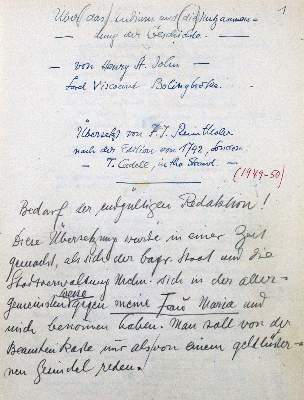 1
Über (das) Studium und (die) Nutzanwen-
dung der Geschichte.
– von Henry St. John –
Lord Viscount Bolingbroke.
Übersetzt von F. J.
nach der Edition von 1792, London
– T. Cadell, in the Strand. –
(1949-50)
Bedarf der endgültigen Redaktion!
Diese Übersetzung wurde in einer Zeit
gemacht, als sich der bayr. Staat und die
Stadtverwaltung sich in der aller-
gemeinsten Weise gegen meine Frau Maria und
mich benommen haben. Man soll von der
Beamtenkaste nur als von einem geldlüster-
nen Gesindel reden.